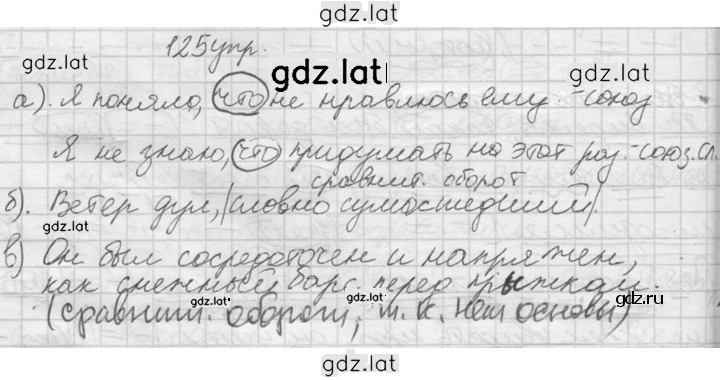 gdz.lat
125упр.
gdz.lat
а). Я поняла, что не нравлюсь ему. - союз
Я не знаю, что придумать на этот раз. - союз. сл.
сравнит. оборот
б). Ветер дул, |словно сумасшедший|.
в) Он был сосредоточен и напряжен,
как снежный барс перед прыжком.
gdz.lat gdz.lat gdz.ru
(сравнит. оборот, т. к. нет основы)
gdz.lat